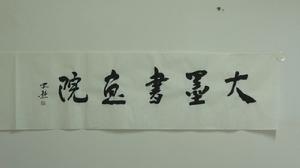 大墨書画院